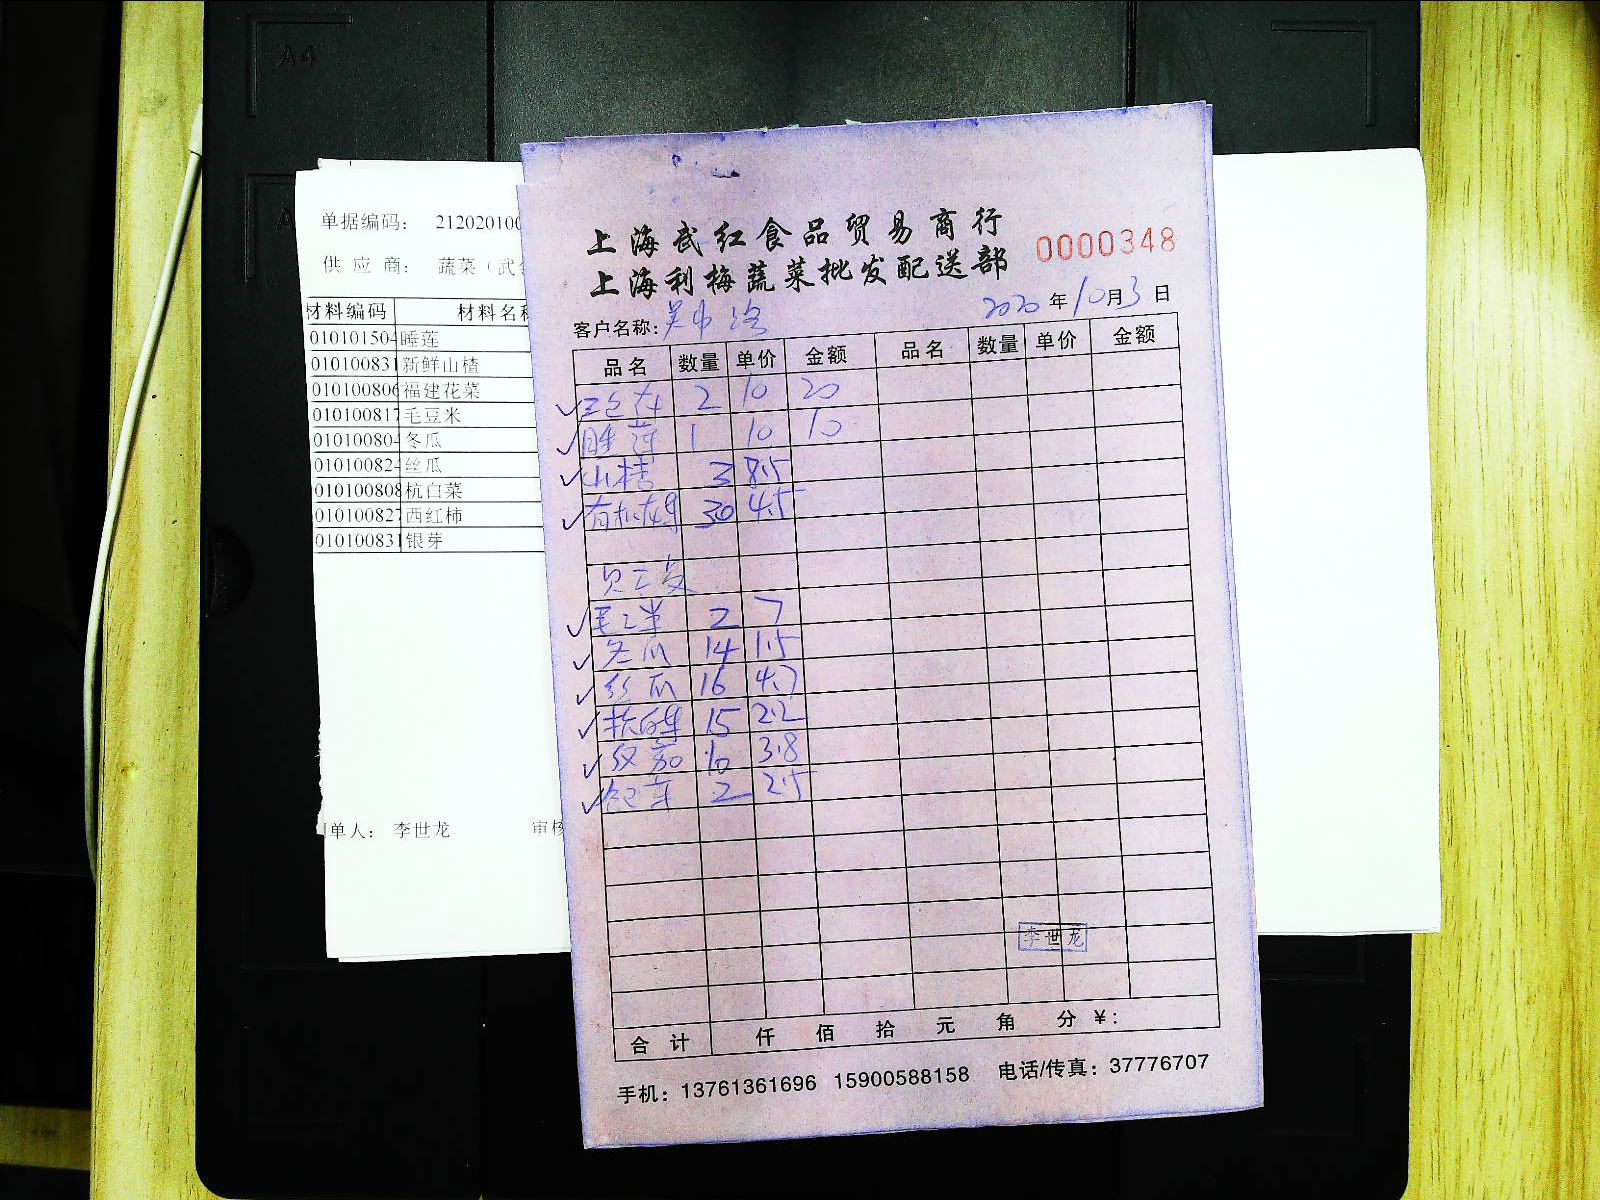 A4
单据编码： 212020100
供 应 商： 蔬菜（武
材料编码 材料名称
010101504 睡莲
010100831 新鲜山楂
010100806 福建花菜
010100817 毛豆米
010100804 冬瓜
010100824 丝瓜
010100808 杭白菜
010100827 西红柿
010100831 银芽
单人： 李世龙 审核
上海武红食品贸易商行
上海利梅蔬菜批发配送部
0000348
2020 年 10 月 3 日
客户名称：
品名 数量 单价 金额 品名 数量 单价 金额
2 10 20
睡莲 1 10 10
山楂 3 8.5
有机花 30 4.5
毛豆米 2 7
冬瓜 14 1.5
丝瓜 16 4.7
杭白菜 15 2.2
红茄 10 3.8
银芽 2 2.5
李世龙
合计 仟 佰 拾 元 角 分 ¥：
手机：13761361696 15900588158 电话/传真：37776707